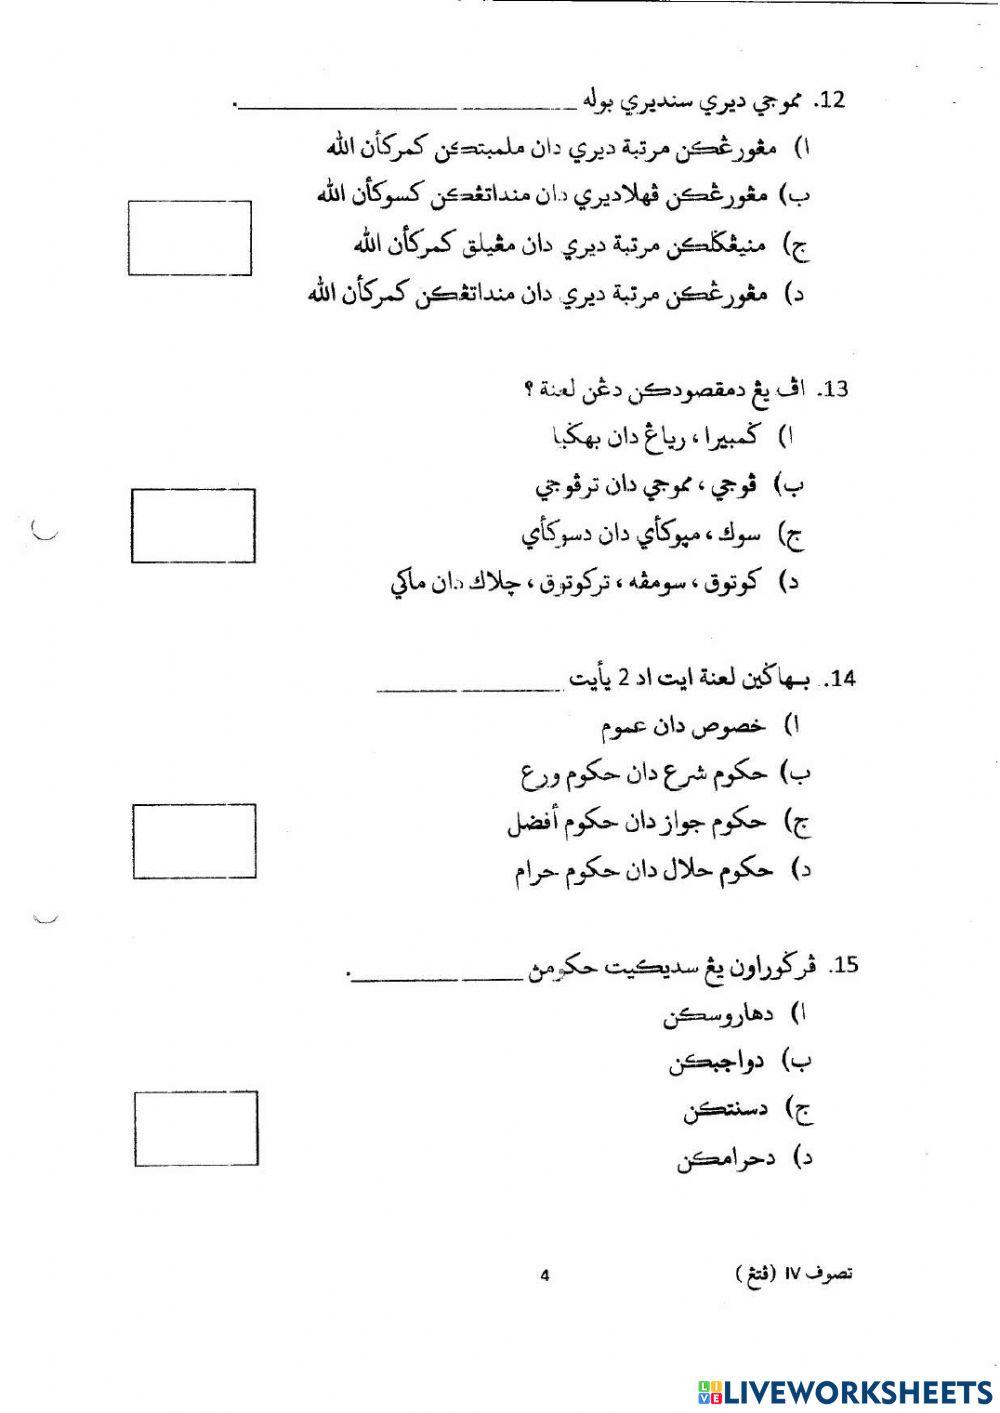 12. مموجي ديري سنديري بوله ____________________.
ا) مڠورڠکن مرتبة ديري دان ملمبتکن کمرکأن الله
ب) مڠورڠکن ڤهلاديري دان منداتڠکن کسوکأن الله
ج) منيڠݢلکن مرتبة ديري دان مڠيلق کمرکأن الله
د) مڠورڠکن مرتبة ديري دان منداتڠکن کمرکأن الله
13. اڤ يڠ دمقصودکن دڠن لعنة ؟
ا) ݢمبيرا ، رياڠ دان بهݢيا
ب) ڤوجي ، مموجي دان ترڤوجي
ج) سوك ، مپوکأي دان دسوکأي
د) کوتوق ، سومڤه ، ترکوتوق ، چلاك دان ماکي
14. بهاݢين لعنة ايت اد 2 يأيت ____________
ا) خصوص دان عموم
ب) حکوم شرع دان حکوم ورع
ج) حکوم جواز دان حکوم أفضل
د) حکوم حلال دان حکوم حرام
15. ڤرݢوراون يڠ سديکيت حکومڽ ____________.
ا) دهاروسکن
ب) دواجبکن
ج) دسنتکن
د) دحرامکن
تصوف IV (ڤتڠ)
4
LIVEWORKSHEETS